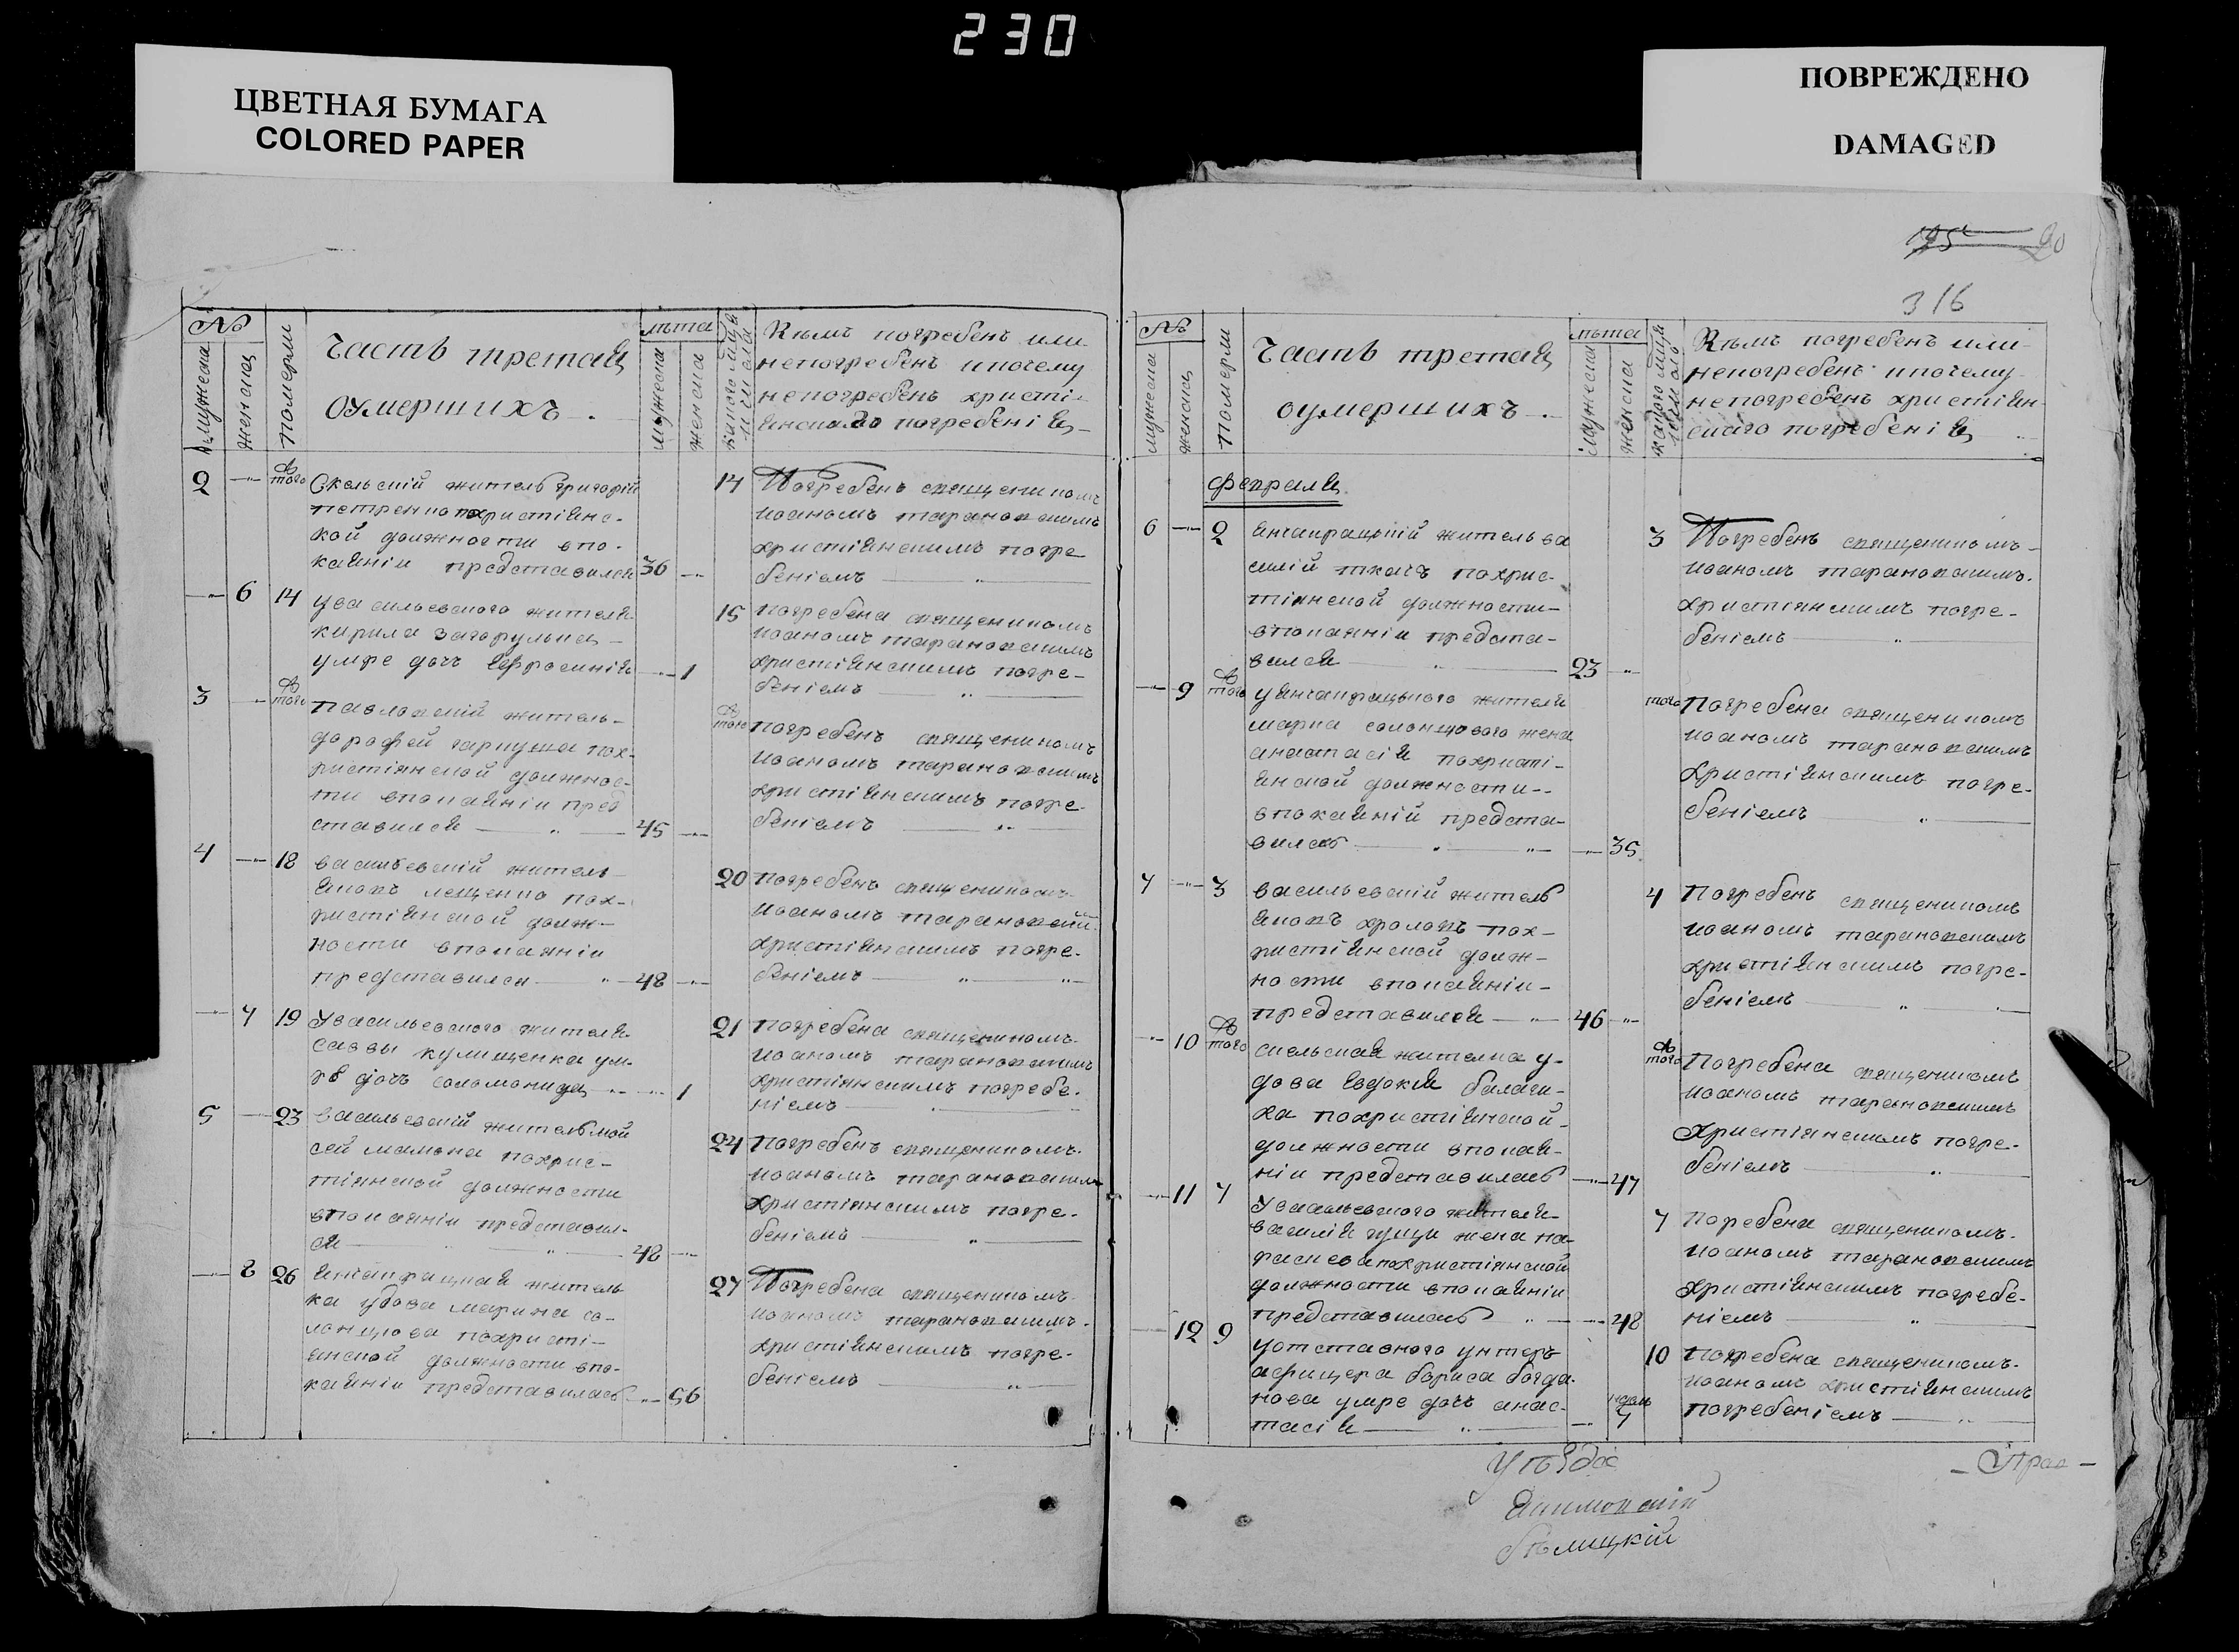 230
ЦВЕТНАЯ БУМАГА
COLORED PAPER
ПОВРЕЖДЕНО
DAMAGED
316
№
мужеска
женска
Померли
Часть третая
оумершихъ.
лѣта
мужеска
женска
Кѣмъ погребенъ или
непогребенъ ипочему
непогребенъ христі-
янскаго погребенія
2 того 14
Скельскій житель григорій
петренко похристіянс-
кой должности впо-
каяніи представился 36
Погребенъ священикомъ
иоаномъ тарановскимъ
христіянскимъ погре
беніемъ
6 14 15
увасильевского жителя
кирила загорулька
умре дочъ Ефросинія 1
погребена священикомъ
иоаномъ тарановскимъ
христіянскимъ погре-
беніемъ
3 того того
павловскій житель
дорофей гаркуша пох-
ристіянской должнос-
ти впокаяніи пред
ставился 45
погребенъ священикомъ
иоаномъ тарановскимъ
христіянскимъ погре-
беніемъ
4 18 20
васильевскій житель
яковъ лещенко пох-
ристіянской долж-
ности впокаяніи
представился 48
погребенъ священикомъ
иоаномъ тарановскій
христіянскимъ погре-
беніемъ
7 19 21
Увасильевского жителя
саввы кулищенка ум-
ре дочъ соломонида 1
погребена священикомъ
иоаномъ тарановскимъ
христіянскимъ погребе-
ніемъ
5 23 24
васильевскій житель мой
сей мамона похрис-
тіянской должности
впокаяніи представил-
ся 48
погребенъ священикомъ
иоаномъ тарановскимъ
христіянскимъ погре-
беніемъ
8 26 27
янчаирацкая житель
ка удова марина со-
лонцова похристі-
янской должности впо-
каяніи представилась 56
Погребена священикомъ
иоаномъ тарановскимъ
христіянскимъ погре-
беніемъ
№
мужеска
женска
Померли
Часть третая
оумершихъ.
лѣта
мужеска
женска
Кѣмъ погребенъ или
непогребенъ ипочему
непогребенъ христіян-
скаго погребенія
февраля
6 2 3
янчаирацкій житель ва
силій ткачъ похрис-
тіянской должности
впокаяніи предста-
вился 23
Погребенъ священикомъ
иоаномъ тарановскимъ
христіянскимъ погре-
беніемъ
9 того того
уянчаирацкого жителя
марка солонцового жена
анастасія похристі-
янской должности
впокаяній предста-
вилась 35
погребена священикомъ
иоаномъ тарановскимъ
христіянскимъ погре-
беніемъ
7 3 4
васильевскій житель
яковъ хромовъ пох-
ристіянской долж-
ности впокаяніи
представился 46
погребенъ священикомъ
иоаномъ тарановскимъ
христіянскимъ погре-
беніемъ
10 того того
скельская жителка у-
дова Евдокія балаги-
ха похристіянской
должности впокая-
ніи представилась 47
погребена священикомъ
иоаномъ тарановскимъ
христіянскимъ погре-
беніемъ
11 7 7
Увасильевского жителя
василія гущи жена па-
раскева похристіянской
должности впокаяніи
представилась 48
поребена священикомъ
иоаномъ тарановскимъ
христіянскимъ погребе-
ніемъ
12 9 10
уотставного унтеръ
афицера бориса богда-
нова умре дочъ анас-
тасія 7
погребена священикомъ
иоаномъ христіянскимъ
погребеніемъ